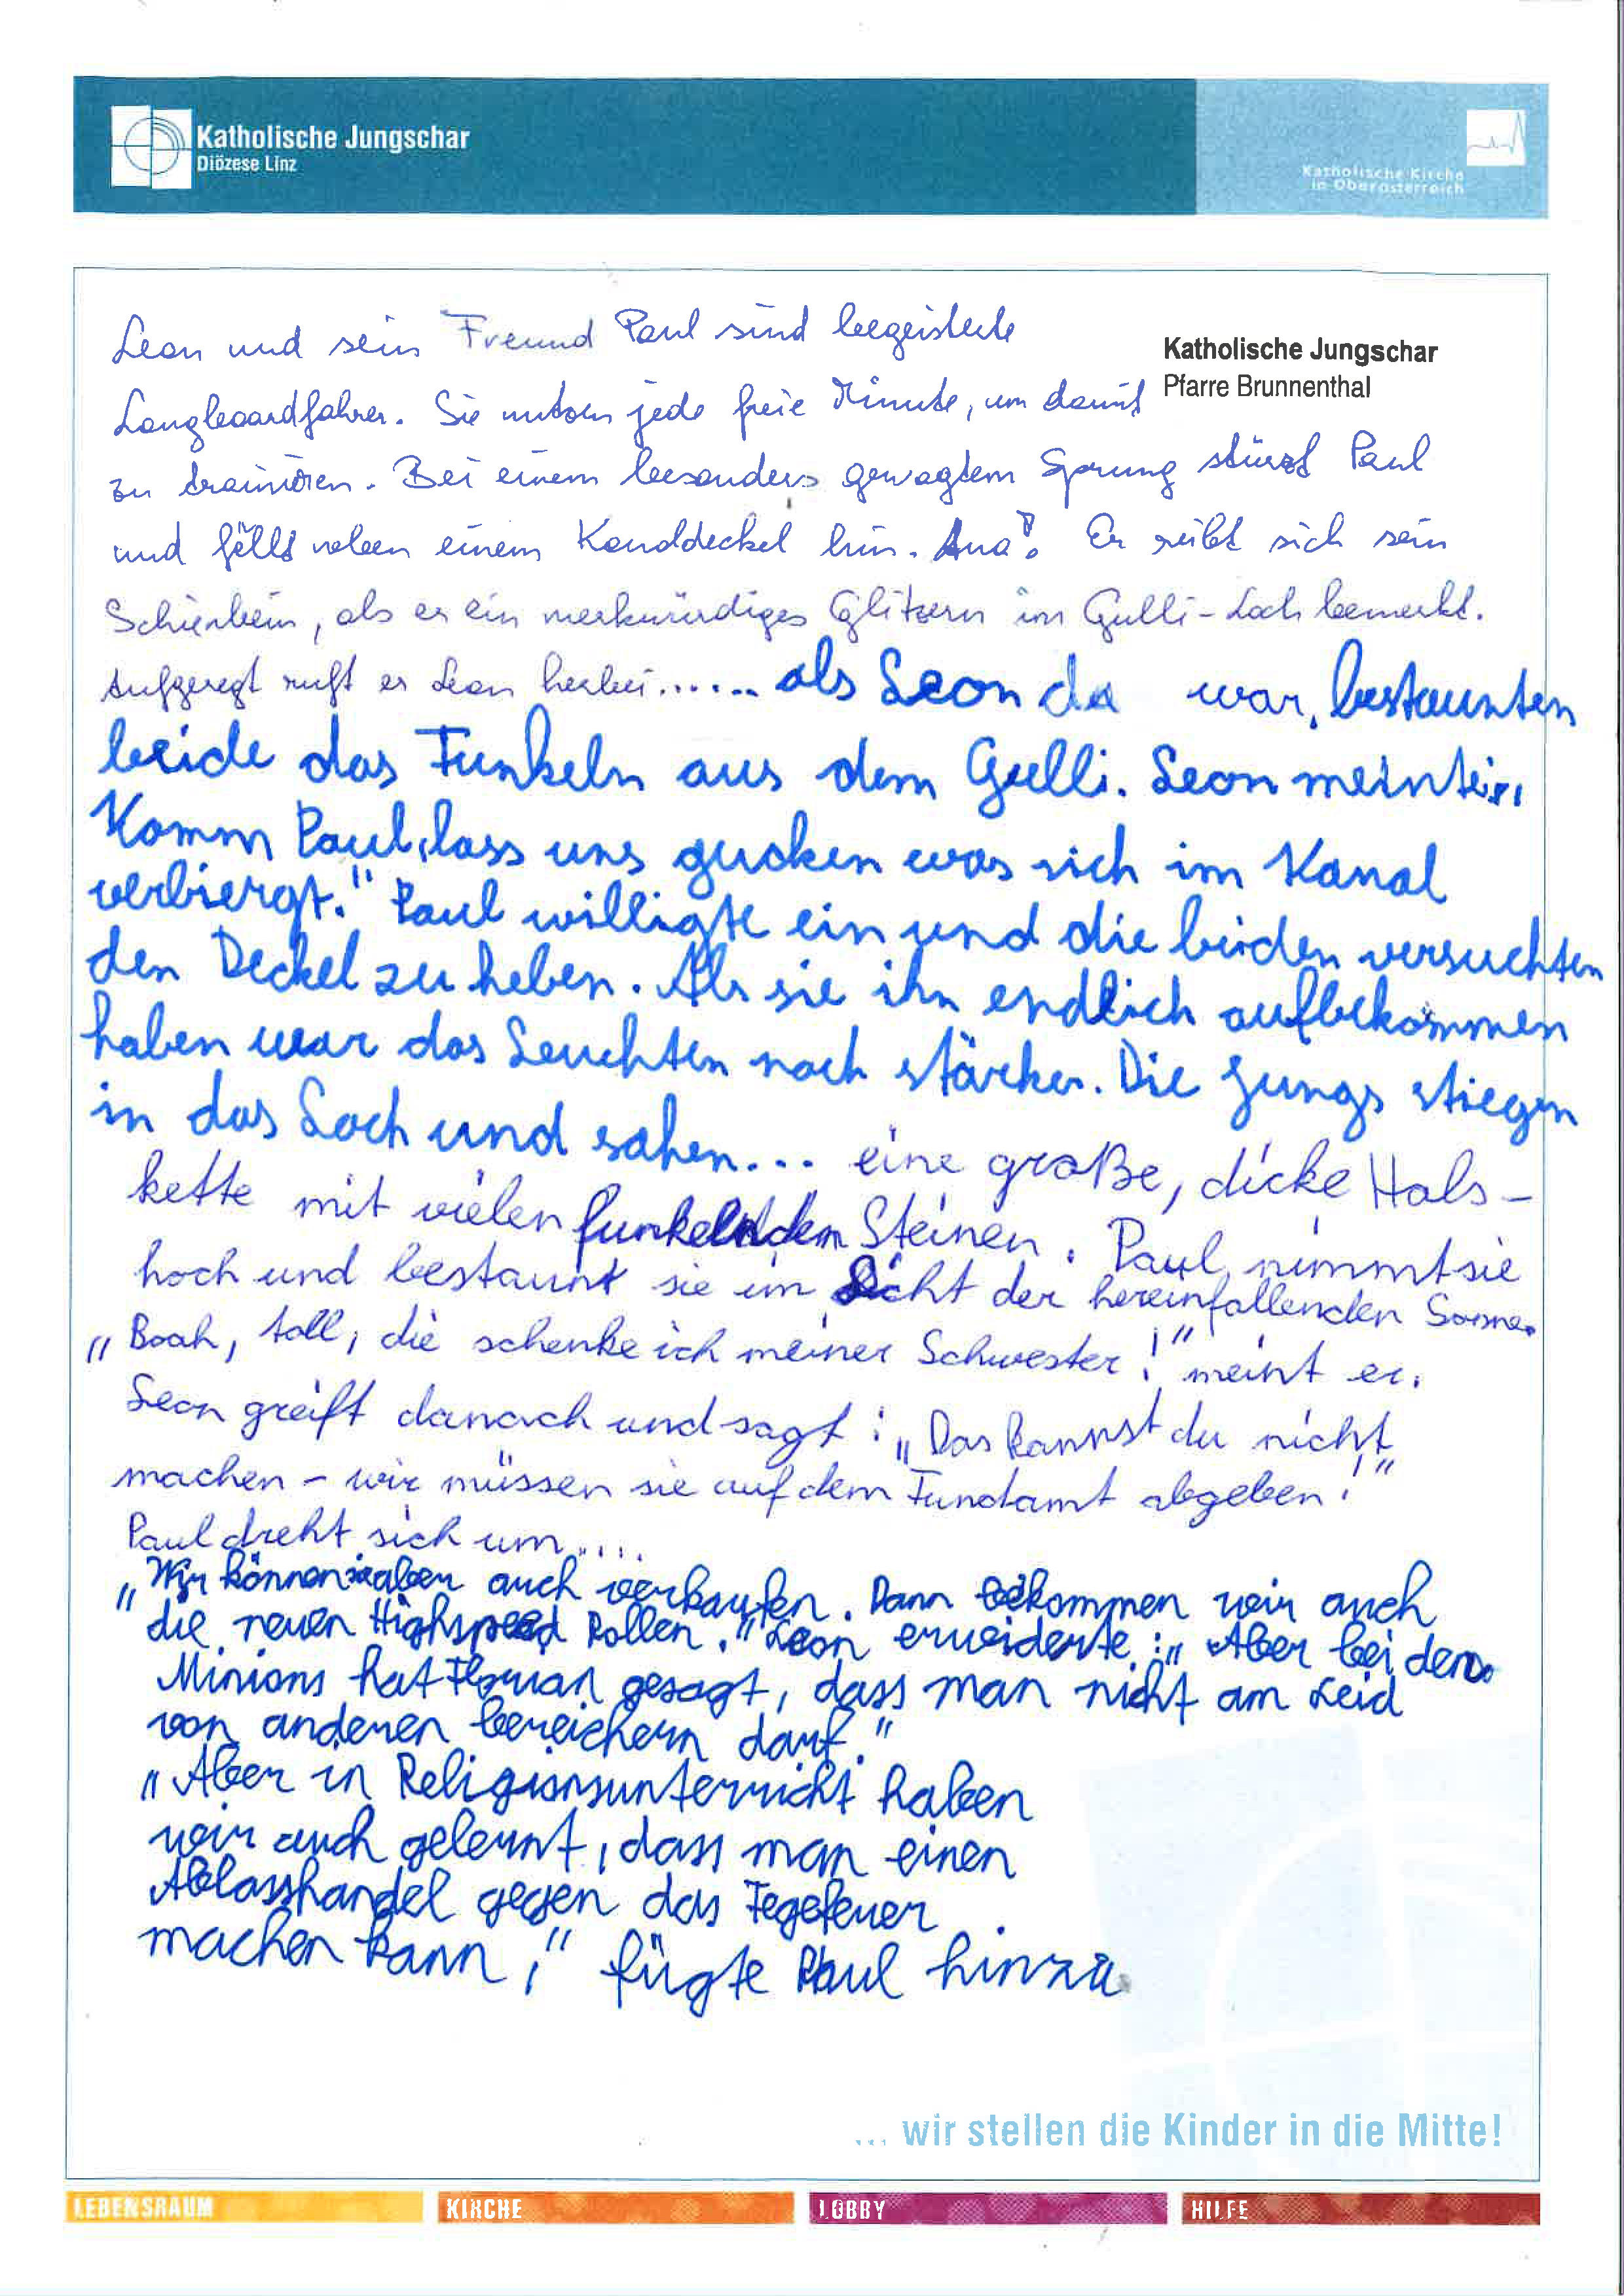 Katholische Jungschar
Diözese Linz
Katholische Kirche
in Oberösterreich
Katholische Jungschar
Pfarre Brunnenthal
Leon und sein Freund Paul sind begeisterte
Longboardfahrer. Sie nutzen jede freie Minute, um damit
zu trainieren. Bei einem besonders gewagtem Sprung stürzt Paul
und fällt neben einem Kanaldeckel hin. Aua! Er reibt sich sein
Schienbein, als er ein merkwürdiges Glitzern im Gulli-Loch bemerkt.
Aufgeregt ruft er Leon herbei...... als Leon da war, bestaunten
beide das Funkeln aus dem Gulli. Leon meinte: "
Komm Paul, lass uns gucken was sich im Kanal
verbiergt." Paul willigte ein und die beiden versuchten
den Deckel zu heben. Als sie ihn endlich aufbekommen
haben war das Leuchten noch stärker. Die Jungs stiegen
in das Loch und sahen... eine große, dicke Hals-
kette mit vielen funkelnden Steinen. Paul nimmt sie
hoch und bestaunt sie im Licht der hereinfallenden Sonne.
"Boah, toll, die schenke ich meiner Schwester!" meint er.
Leon greift danach und sagt: "Das kannst du nicht
machen - wir müssen sie auf dem Fundamt abgeben!"
Paul dreht sich um....
"Wir können sie aber auch verkaufen. Dann bekommen wir auch
die neuen Highspeed Rollen." Leon erwiderte: "Aber bei den
Minions hat Florian gesagt, dass man nicht am Leid
von anderen bereichern darf."
"Aber in Religionsunterricht haben
wir auch gelernt, dass man einen
Ablasshandel gegen das Fegefeuer
machen kann," fügte Paul hinzu.
... wir stellen die Kinder in die Mitte!
LEBENSRAUM KIRCHE LOBBY HILFE